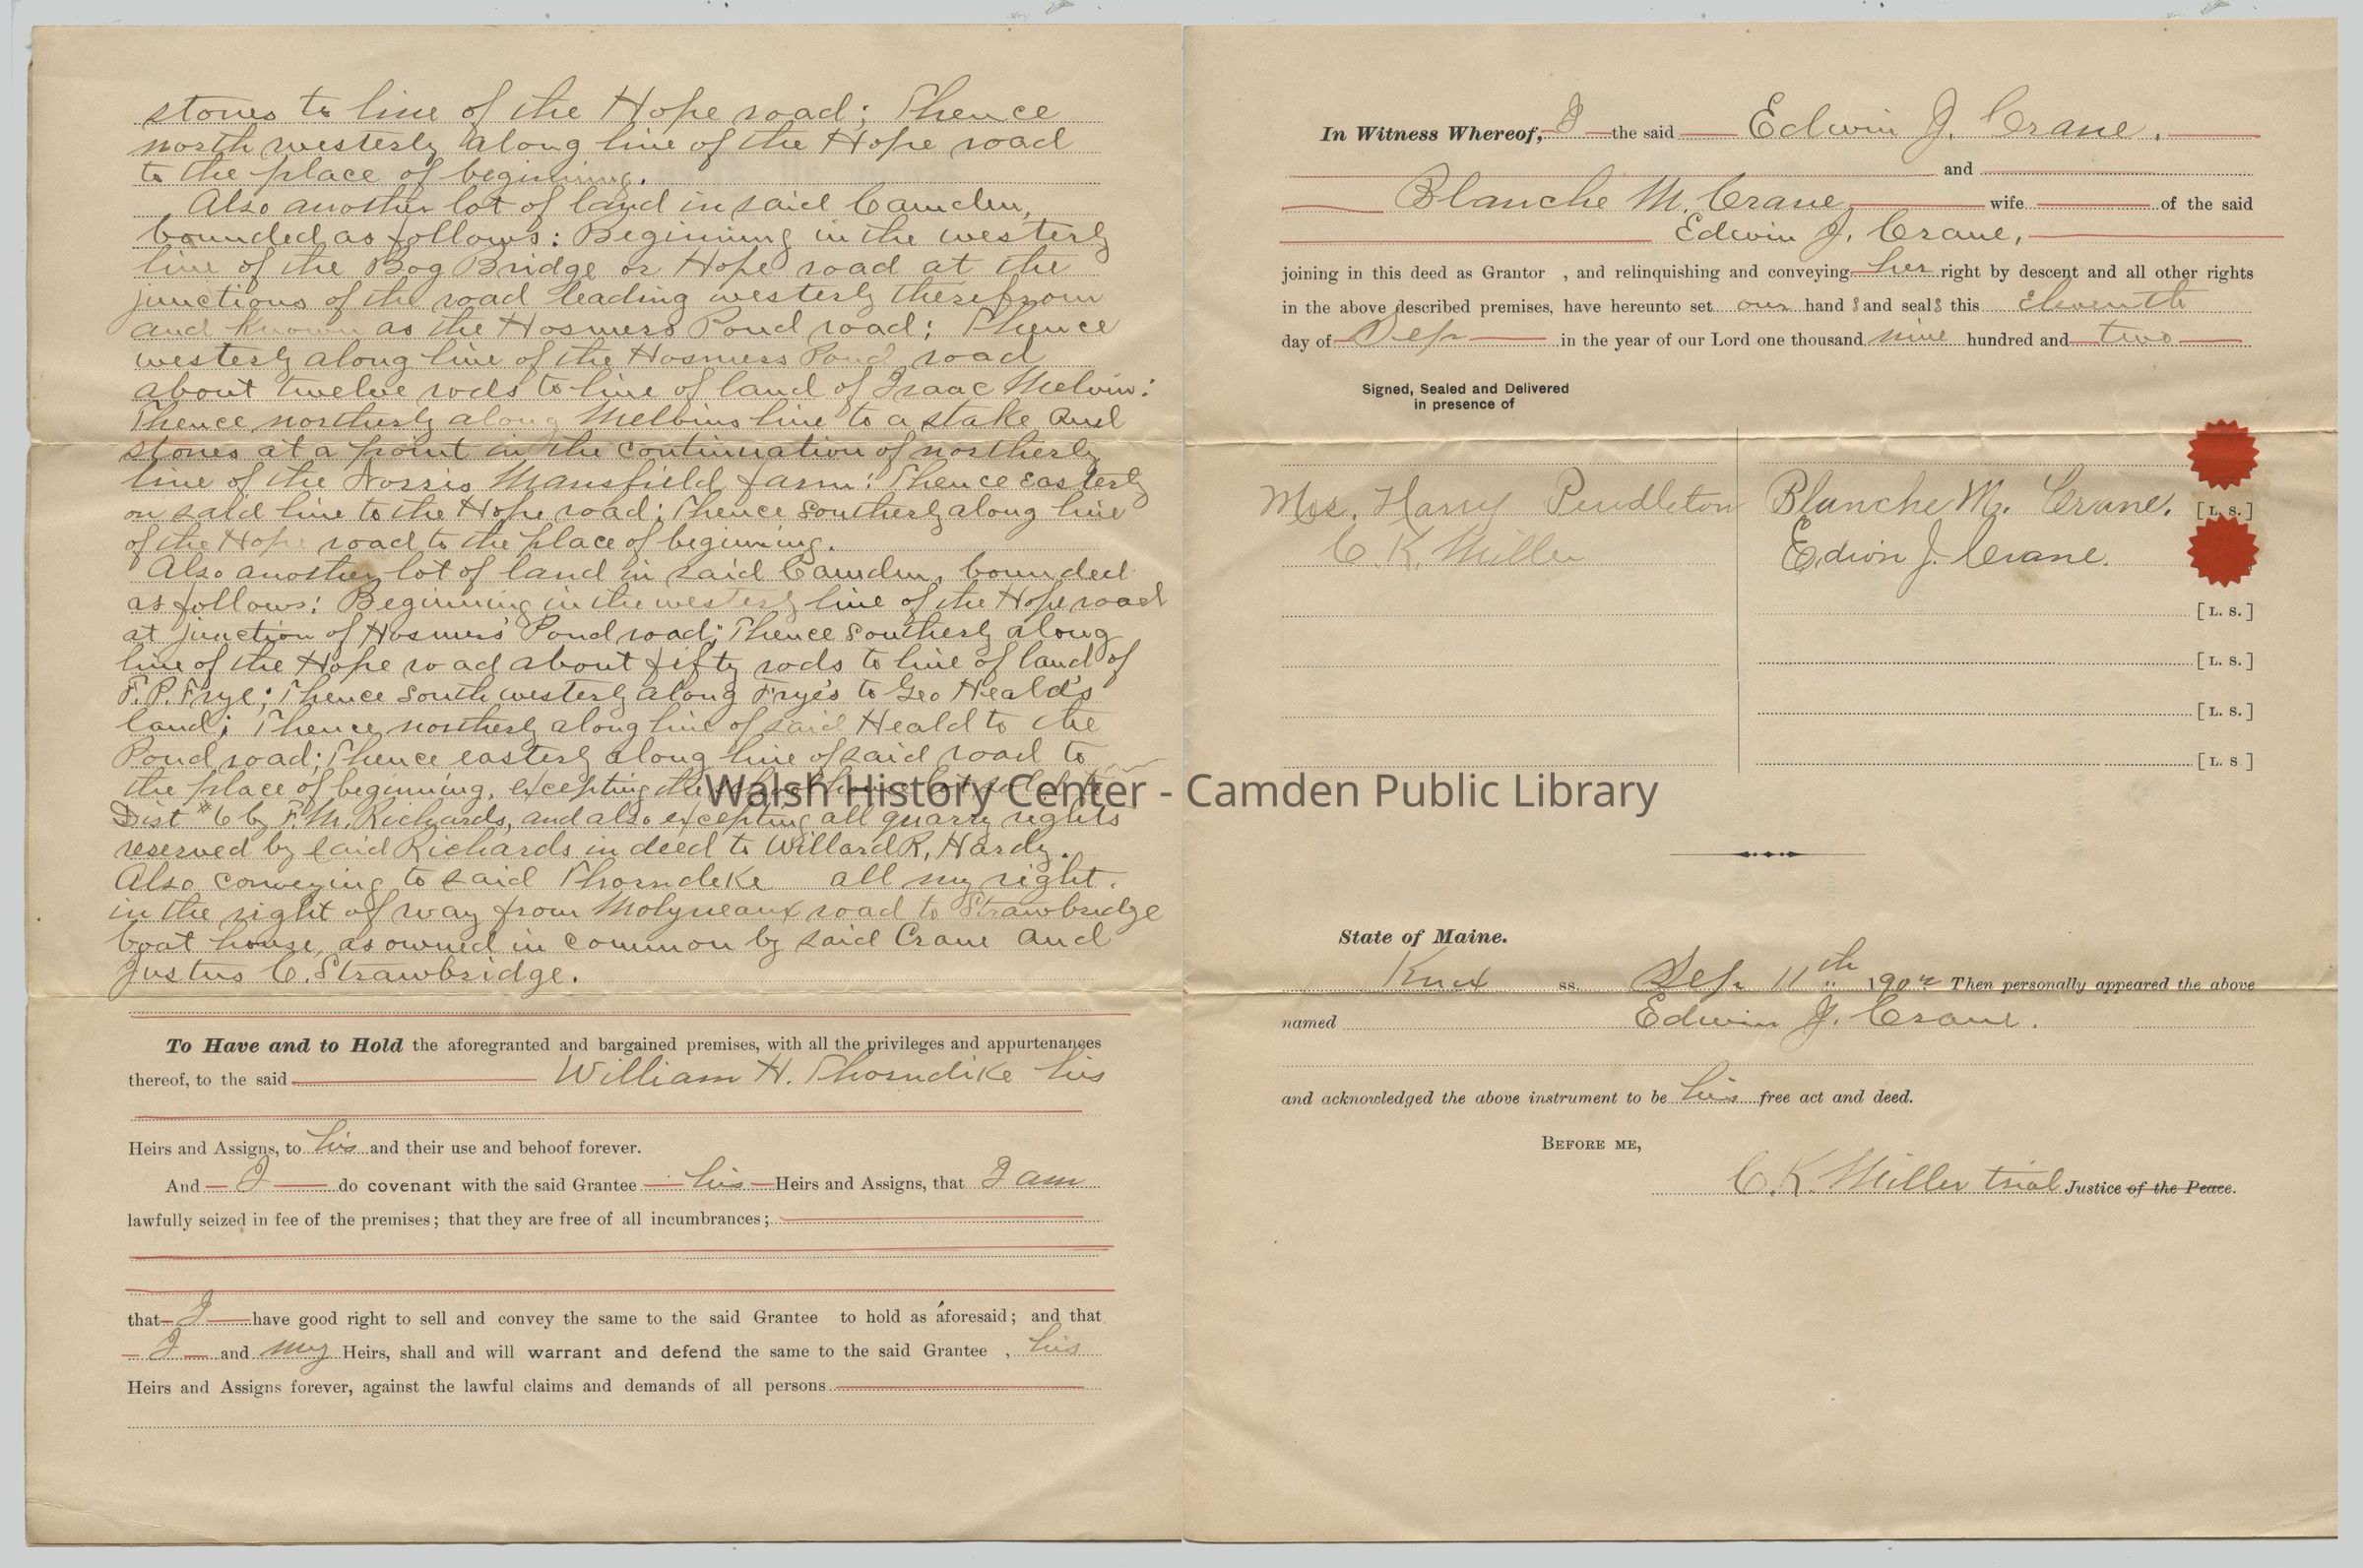 stones to line of the Hope road; Thence
north westerly along line of the Hope road
to the place of beginning.
Also another lot of land in said Camden,
bounded as follows: Beginning in the westerly
line of the Bog Bridge or Hope road at the
junctions of the road leading westerly therefrom
and known as the Hosmers Pond road; Thence
westerly along line of the Hosmers Pond road
about twelve rods to line of land of Isaac Melvin:
Thence northerly along Melvins line to a stake and
stones at a point in the continuation of northerly
line of the Norris Mansfield farm: Thence Easterly
on said line to the Hope road; Thence Southerly along line
of the Hope road to the place of beginning.
Also another lot of land in said Camden, bounded
as follows: Beginning in the westerly line of the Hope road
at junction of Hosmers' Pond road; Thence Southerly along
line of the Hope road about fifty rods to line of land of
F. P. Frye; Thence South westerly along Frye's to Geo Heald's
land; Thence northerly along line of said Heald to the
Pond road; Thence easterly along line of said road to
the place of beginning, excepting the
Dist #6 by F. M. Richards, and also excepting all quarry rights
reserved by said Richards in deed to Willard R. Hardy.
Also conveying to said Thorndike all my right.
in the right of way from Molyneaux road to Strawbridge
boat house, as owned in common by said Crane and
Justus C. Strawbridge.
To Have and to Hold the aforegranted and bargained premises, with all the privileges and appurtenances
thereof, to the said William H. Thorndike his
Heirs and Assigns, to his and their use and behoof forever.
And I do covenant with the said Grantee his Heirs and Assigns, that I am
lawfully seized in fee of the premises; that they are free of all incumbrances;
that I have good right to sell and convey the same to the said Grantee to hold as aforesaid; and that
I and my Heirs, shall and will warrant and defend the same to the said Grantee , his
Heirs and Assigns forever, against the lawful claims and demands of all persons
In Witness Whereof, I the said Edwin J. Crane,
and
Blanche M. Crane wife of the said
Edwin J. Crane,
joining in this deed as Grantor , and relinquishing and conveying her right by descent and all other rights
in the above described premises, have hereunto set our hand s and seal s this Eleventh
day of Sep in the year of our Lord one thousand nine hundred and two
Signed, Sealed and Delivered
in presence of
Mrs. Harry Pendleton Blanche M. Crane. [L. S.]
C. K. Miller Edwin J. Crane.
[L. S.]
[L. S.]
[L. S.]
[L. S.]
Walsh History Center - Camden Public Library
State of Maine.
Knox ss. Sep. 11th 1902 Then personally appeared the above
named Edwin J. Crane.
and acknowledged the above instrument to be his free act and deed.
Before me,
C. K. Miller trial Justice of the Peace.